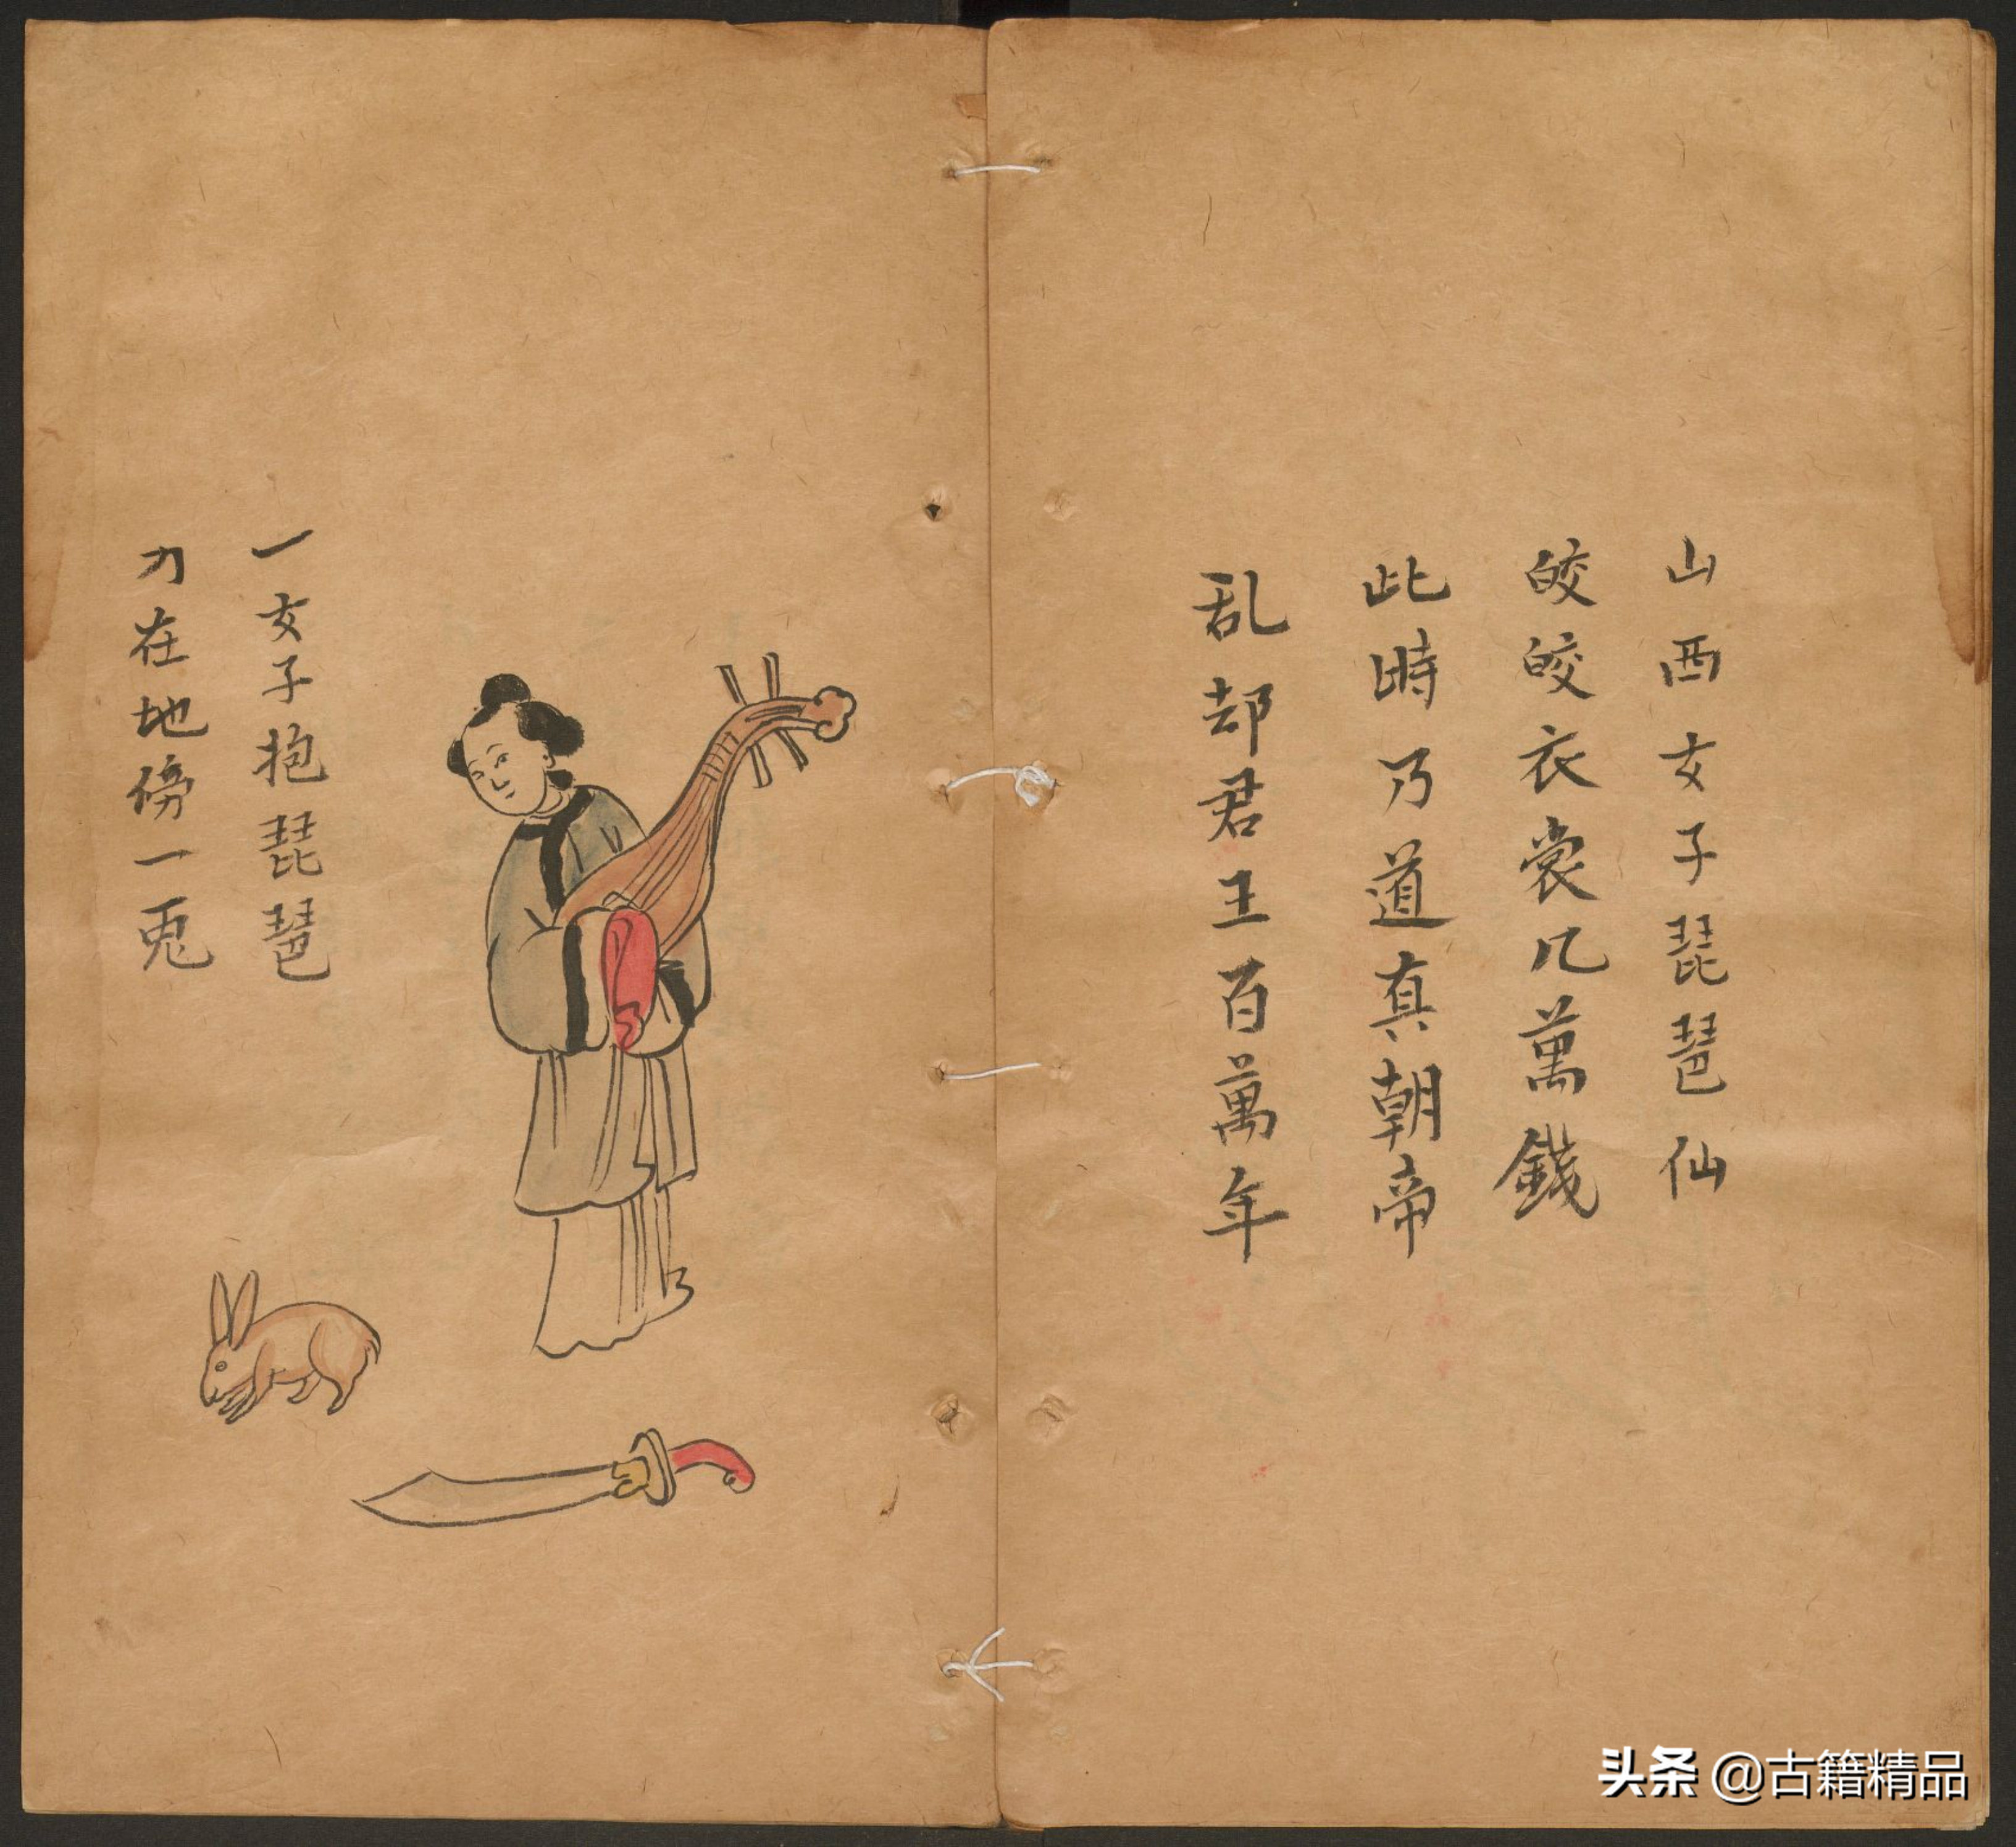 山西女子琵琶仙
皎皎衣裳几萬錢
此時乃道真朝帝
乱却君王百萬年
一女子抱琵琶
刀在地傍一兎
头条 @古籍精品